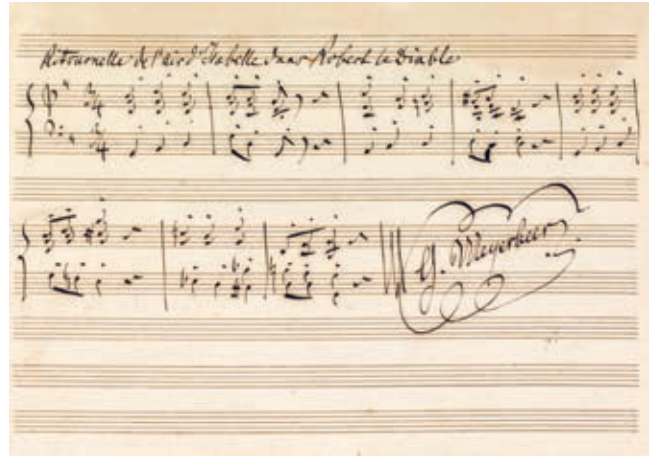 Ritournelle de l'air d'Isabelle dans Robert le Diable
G. Meyerbeer